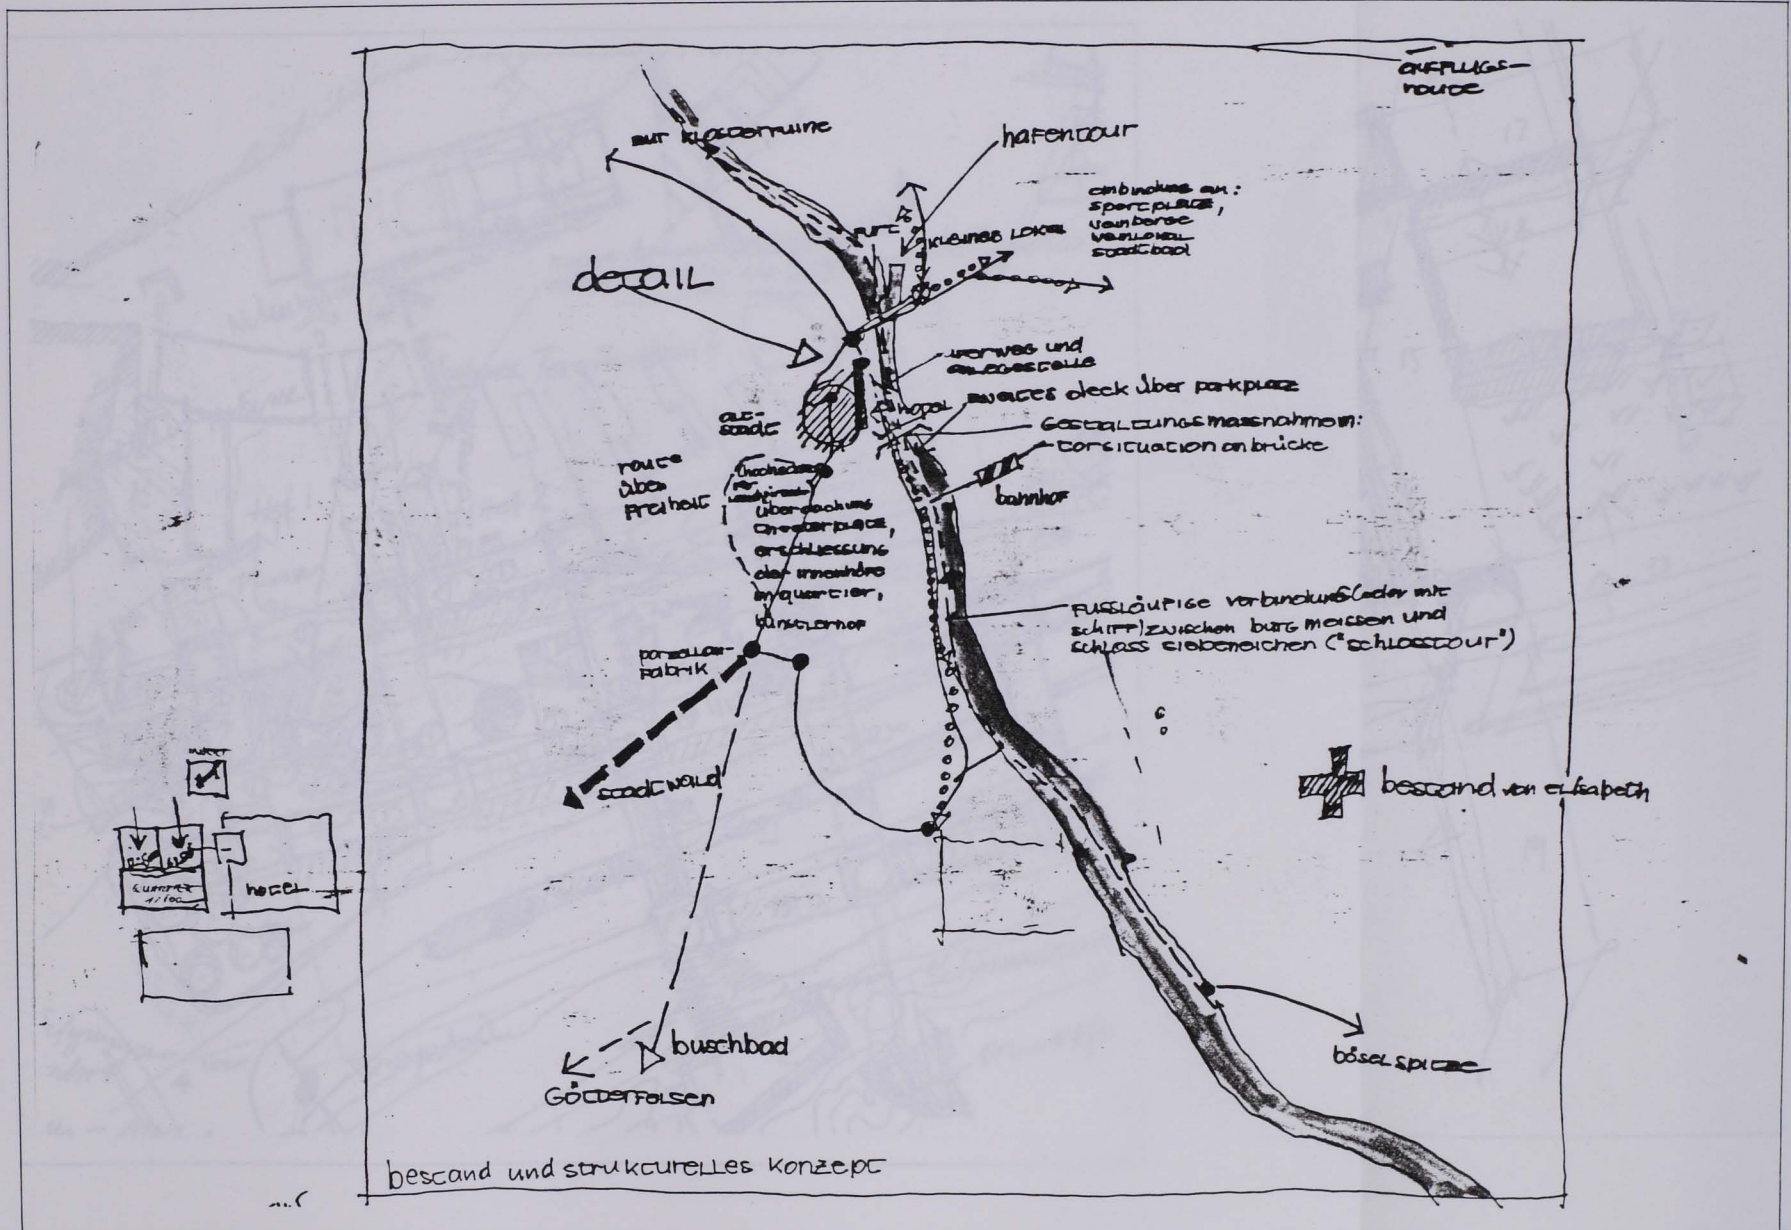 ausflugs-
route
zur klosterruine
hafentour
anbindung an:
sportplatz,
weinberge
weinlokal
stadtbad
furt
kleines lokal
detail
uferweg und
anlegestelle
zweites deck über parkplatz
hotel
gestaltungsmassnahmen:
torsituation an brücke
bahnhof
alt-
stadt
route
über
freiheit
überdachung
theaterplatz,
erschliessung
der innenhöfe
im quartier,
künstlerhof
fussläufige verbindung (oder mit
schiff) zwischen burg meissen und
schloss siebeneichen ("schlosstour")
porzellan-
fabrik
stadtwald
bestand von elisabeth
hotel
buschbad
götterfelsen
böselspitze
bestand und strukturelles konzept